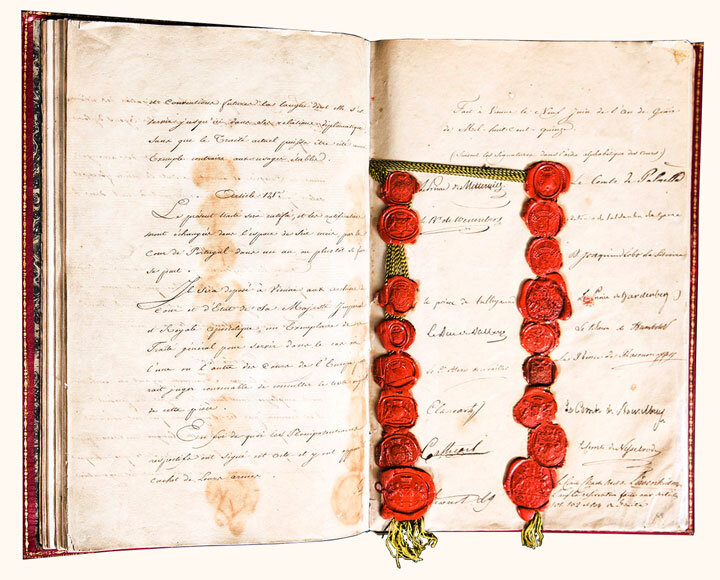 et Conventions futures les langues dont elle s'est
servie jusqu'ici dans ses relations diplomatiques
sans que le Traité actuel puisse être cité comme
Exemple contraire aux usages établis
Article 121.
Le présent traité sera ratifié, et les ratifications
seront échangées dans l'espace de six mois par la
Cour de Portugal dans un an ou plutôt si faire
se peut.
Il sera déposé à Vienne aux archives de
Cour et d'Etat de Sa Majesté Impériale
et Royale apostolique, un Exemplaire de ce
Traité général pour servir dans le cas où
l'une ou l'autre des Cours de l'Europe
rait juger convenable de consulter le texte
de cette pièce.
En foi de quoi les Plénipotentiaires
respectifs ont signé cet acte et y ont apposé
cachet de leurs armes.
Fait à Vienne le Neuf Juin de l'An de Grace
de Mil huit cent quinze
(Suivent les Signatures dans l'ordre alphabétique des Cours)
Le Prince de Metternich
Le Bn de Wessenberg
Le Comte de Palmella
D Joaquim Lobo da Silveira
Le prince de Talleyrand
Le Prince de Hardenberg
Le Duc de Dalberg
Le Baron de Humboldt
Clancarty
Cathcart
Stewart LG
Le Comte de Nesselrode